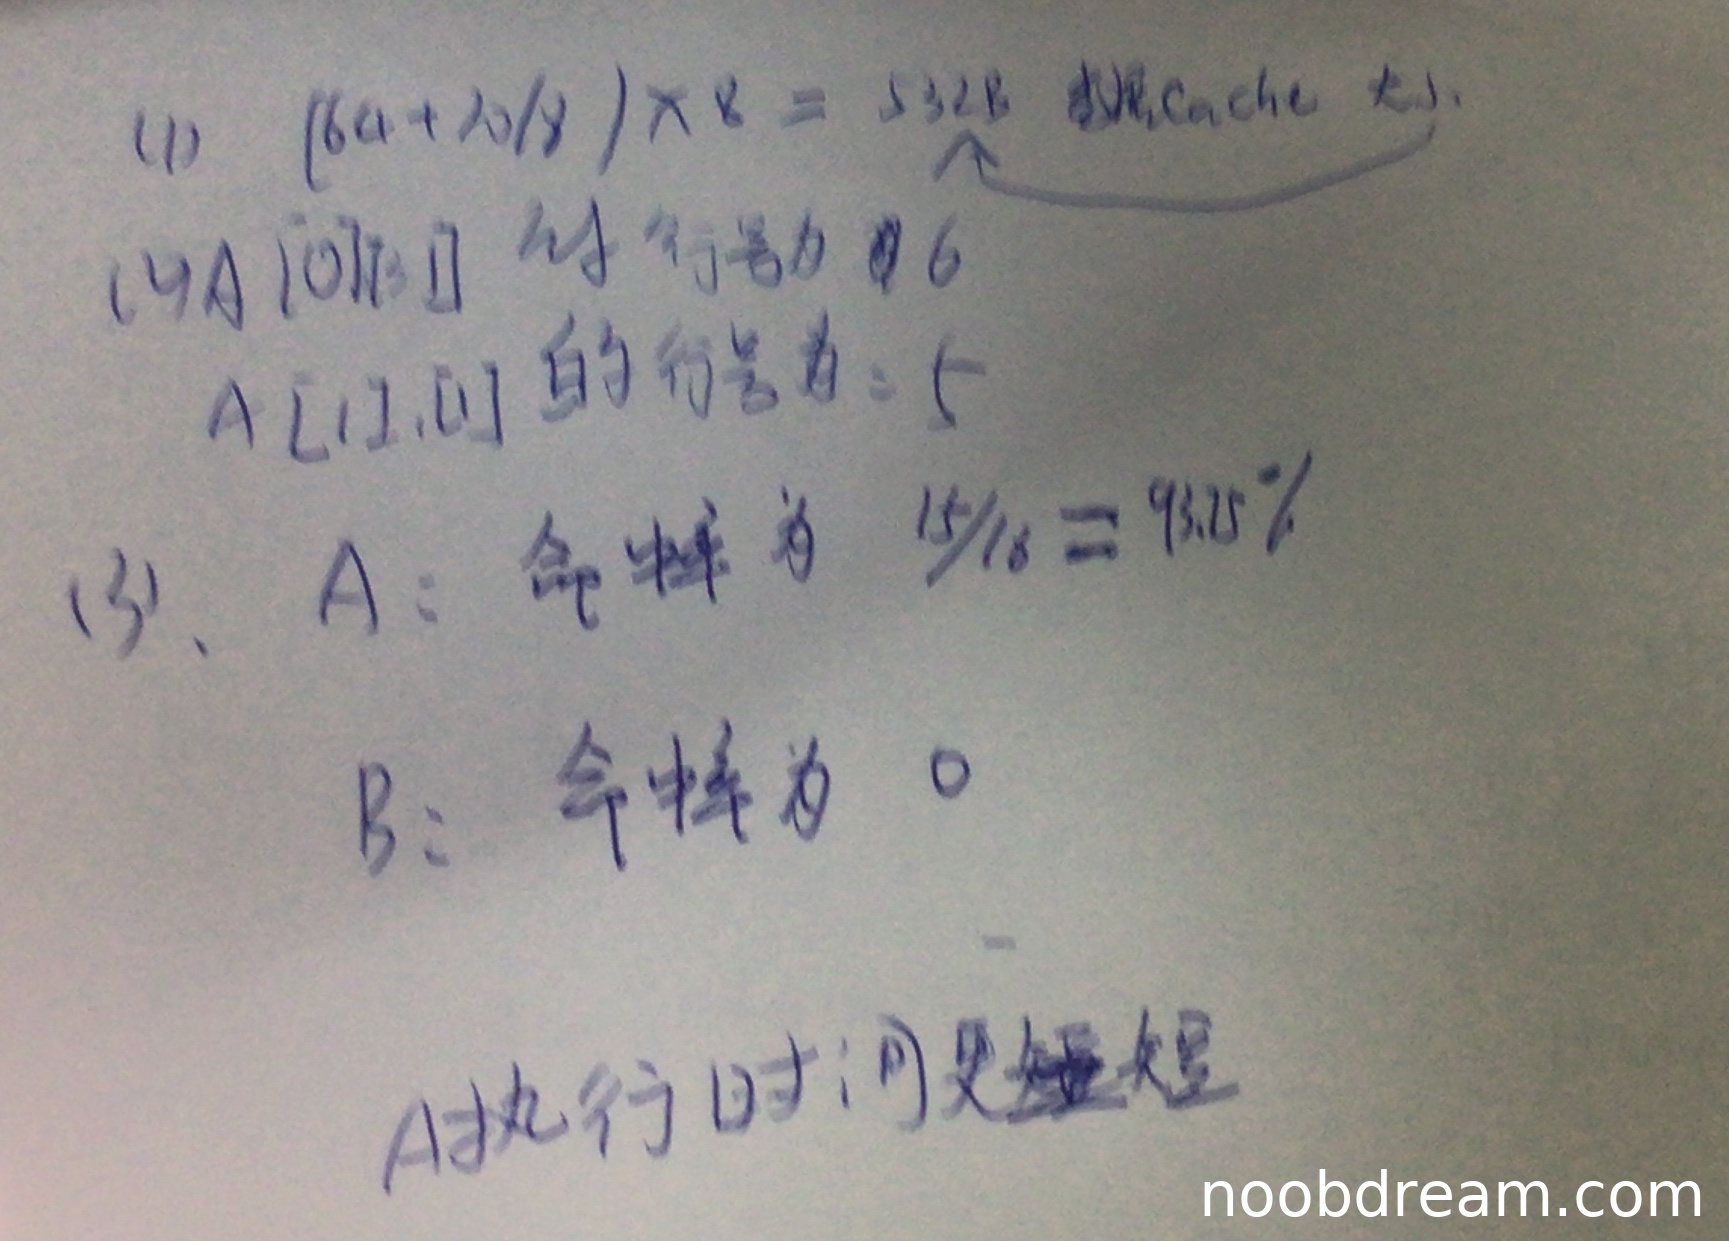 (1) (64+20/8)×8 = 532B 数据Cache 大小.
(2) A[0][31] 的 行号为 6
A[1].[1] 的行号为: 5
(3)、 A: 命中率为 15/16 = 93.25%
B: 命中率为 0
A执行时间更短
noobdream.com